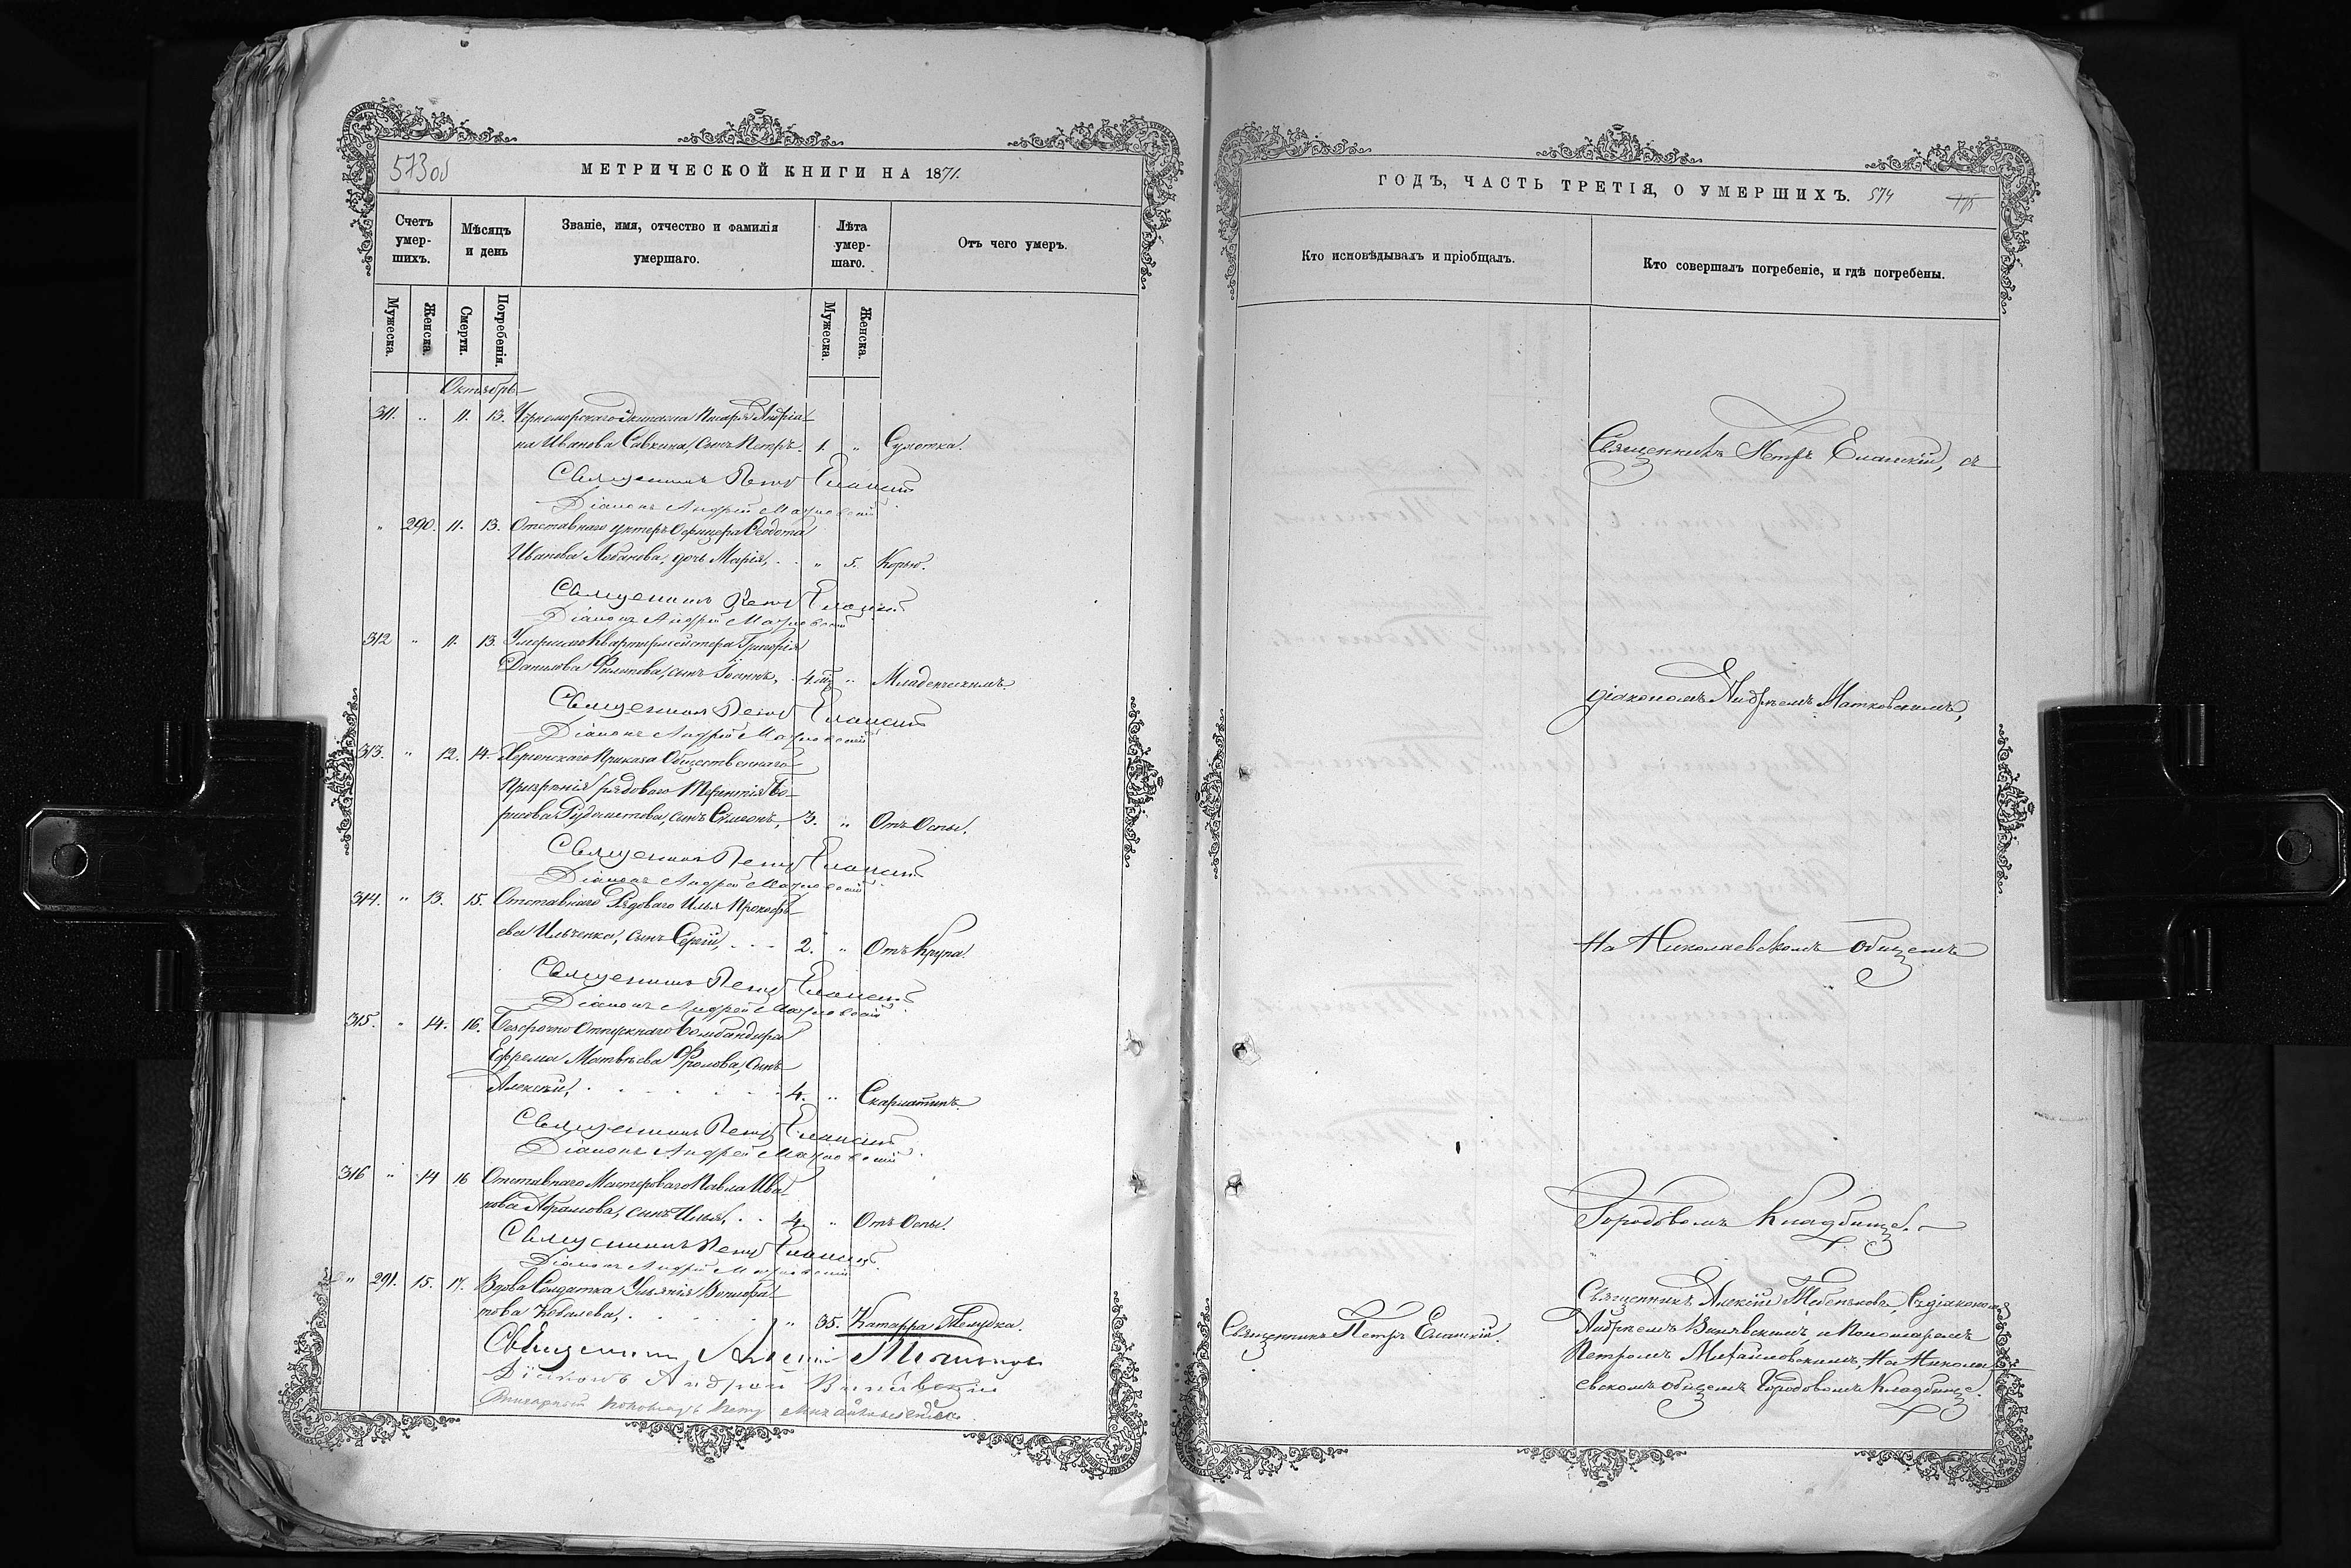 573об
МЕТРИЧЕСКОЙ КНИГИ НА 1871.
Счетъ умер-шихъ.
Мѣсяцъ и день
Званіе, имя, отчество и фамилія умершаго.
Лѣта умер-шаго.
Отъ чего умеръ.
Мужеска.
Женска.
Смерти.
Погребенія.
Мужеска.
Женска.
Октябрь
311. " 11. 13. Черноморскаго Экипажа Писаря Андріа-
на Иванова Савкина, сынъ Петръ. 1. " Сухотка.
Священникъ Петръ Еланскій
Діаконъ Андрей Матковскій
" 290. 11. 13. Отставнаго унтеръ Офицера Ѳеодота
Иванова Лобанова, дочь Марія, " 5. Корью.
Священникъ Петръ Еланскій
Діаконъ Андрей Матковскій
312 " 11. 13. Умершаго Квартирмейстера Григорія
Данилова Филипова, сынъ Іоаннъ, 4. " Младенческимъ.
Священникъ Петръ Еланскій
Діаконъ Андрей Матковскій
313. " 12. 14. Херсонскаго Приказа Общественнаго
Призрѣнія рядоваго Терентія Бо-
рисова Рудометова, сынъ Симеонъ, 3. " Отъ Оспы.
Священникъ Петръ Еланскій
Діаконъ Андрей Матковскій
314. " 13. 15. Отставнаго Рядоваго Илья Прокофь-
ева Ильченко, сынъ Сергій, 2. " Отъ Крупа.
Священникъ Петръ Еланскій
Діаконъ Андрей Матковскій
315. " 14. 16. Безсрочно Отпускнаго Бомбандира
Ефрема Матвѣева Фролова, сынъ
Алексѣй, 4. " Скарлатинъ.
Священникъ Петръ Еланскій
Діаконъ Андрей Матковскій
316 " 14 16 Отставнаго Мастероваго Павла Ива-
нова Абрамова, сынъ Илья, 4. " Отъ Оспы.
Священникъ Петръ Еланскій
Діаконъ Андрей Матковскій
" 291. 15. 17. Вдова Солдатка Ульянія
Ковалева, " 35. Катарра Желудка.
Священникъ Алексій
Діаконъ Андрей
ГОДЪ, ЧАСТЬ ТРЕТІЯ, О УМЕРШИХЪ. 574
Кто исповѣдывалъ и пріобщалъ.
Кто совершалъ погребеніе, и гдѣ погребены.
Священникъ Петръ Еланскій, съ
діакономъ Андреемъ Матковскимъ,
На Николаевскомъ Общемъ
Городовомъ Кладбищѣ.
Священникъ Петръ Еланскій.
Священникъ Алексій съ діакономъ
Андреемъ и Пономаремъ
Петромъ Михайловскимъ, На Никола-
евскомъ общемъ Городовомъ Кладбищѣ.